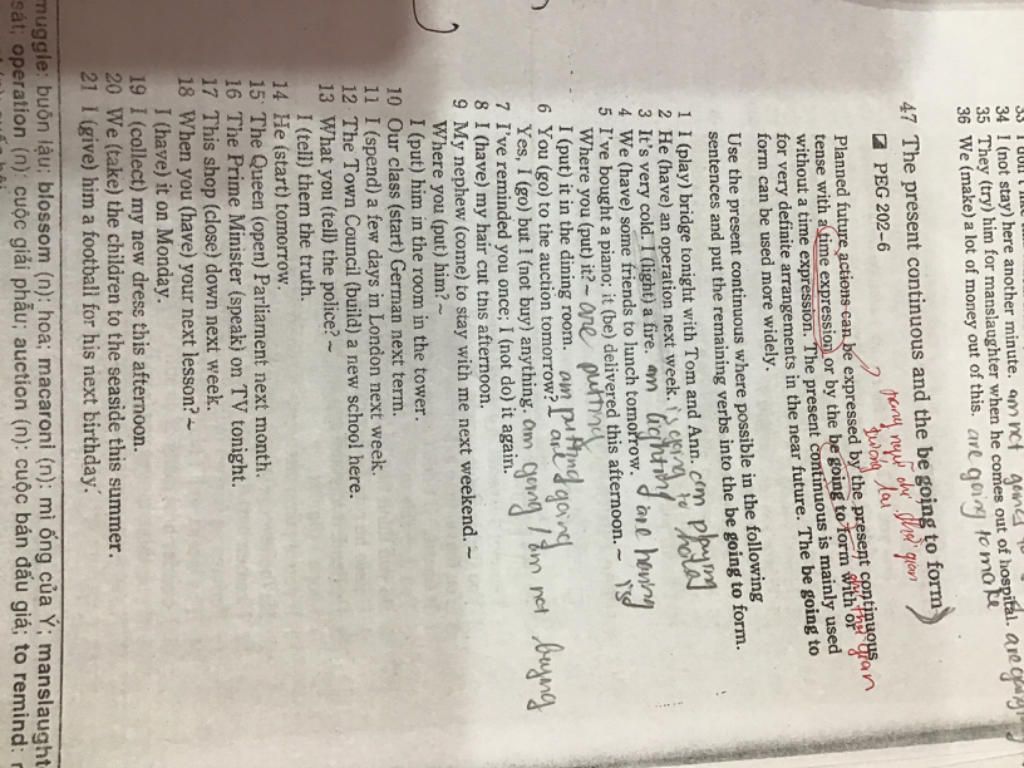 34 I (not stay) here another minute. am not going to
35 They (try) him for manslaughter when he comes out of hospital. are going
36 We (make) a lot of money out of this. are going to make
47 The present continuous and the be going to form
PEG 202-6
Planned future actions can be expressed by the present continuous
tense with a time expression or by the be going to form with or
without a time expression. The present continuous is mainly used
for very definite arrangements in the near future. The be going to
form can be used more widely.
trạng ngữ chỉ thời gian
tương lai
Use the present continuous where possible in the following
sentences and put the remaining verbs into the be going to form.
1 I (play) bridge tonight with Tom and Ann. am playing
2 He (have) an operation next week. is going to
3 It's very cold. I (light) a fire. am lighting
4 We (have) some friends to lunch tomorrow. are having
5 I've bought a piano; it (be) delivered this afternoon. ~ is
Where you (put) it? ~ are putting
I (put) it in the dining room. am putting
6 You (go) to the auction tomorrow? are going
Yes, I (go) but I (not buy) anything. am going / am not buying
7 I've reminded you once; I (not do) it again.
8 I (have) my hair cut this afternoon.
9 My nephew (come) to stay with me next weekend. ~
Where you (put) him? ~
I (put) him in the room in the tower.
10 Our class (start) German next term.
11 I (spend) a few days in London next week.
12 The Town Council (build) a new school here.
13 What you (tell) the police? ~
I (tell) them the truth.
14 He (start) tomorrow.
15 The Queen (open) Parliament next month.
16 The Prime Minister (speak) on TV tonight.
17 This shop (close) down next week.
18 When you (have) your next lesson? ~
I (have) it on Monday.
19 I (collect) my new dress this afternoon.
20 We (take) the children to the seaside this summer.
21 I (give) him a football for his next birthday.
muggle: buôn lậu; blossom (n): hoa; macaroni (n): mì ống của Ý; manslaught
sát; operation (n): cuộc giải phẫu; auction (n): cuộc bán đấu giá; to remind: